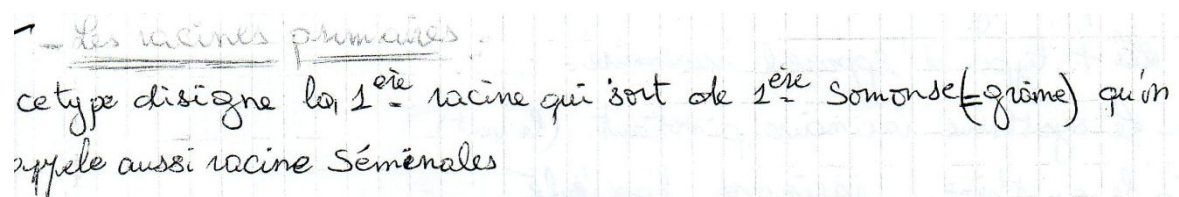 - Les racines primaires.
ce type disigne la 1ère racine qui sort de 1ère Somonse(=grame) qu'on
appele aussi racine Séminales